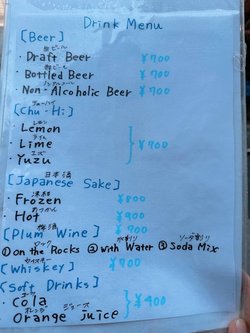 Drink Menu
[Beer]
生ビール
・Draft Beer ¥700
瓶ビール
・Bottled Beer ¥700
ノンアルコール
・Non-Alcoholic Beer ¥700
チューハイ
[Chu-Hi]
レモン
・Lemon
ライム
・Lime ¥700
ユズ
・Yuzu
日本酒
[Japanese Sake]
冷酒
・Frozen ¥800
あつかん
・Hot ¥900
梅酒
[Plum Wine] ¥700
ロック 水割り ソーダ割り
①on the Rocks ②with Water ③Soda Mix
ウイスキー
[Whiskey] ¥700
[Soft Drinks]
コーラ
・Cola
オレンジ ジュース
・Orange juice ¥400